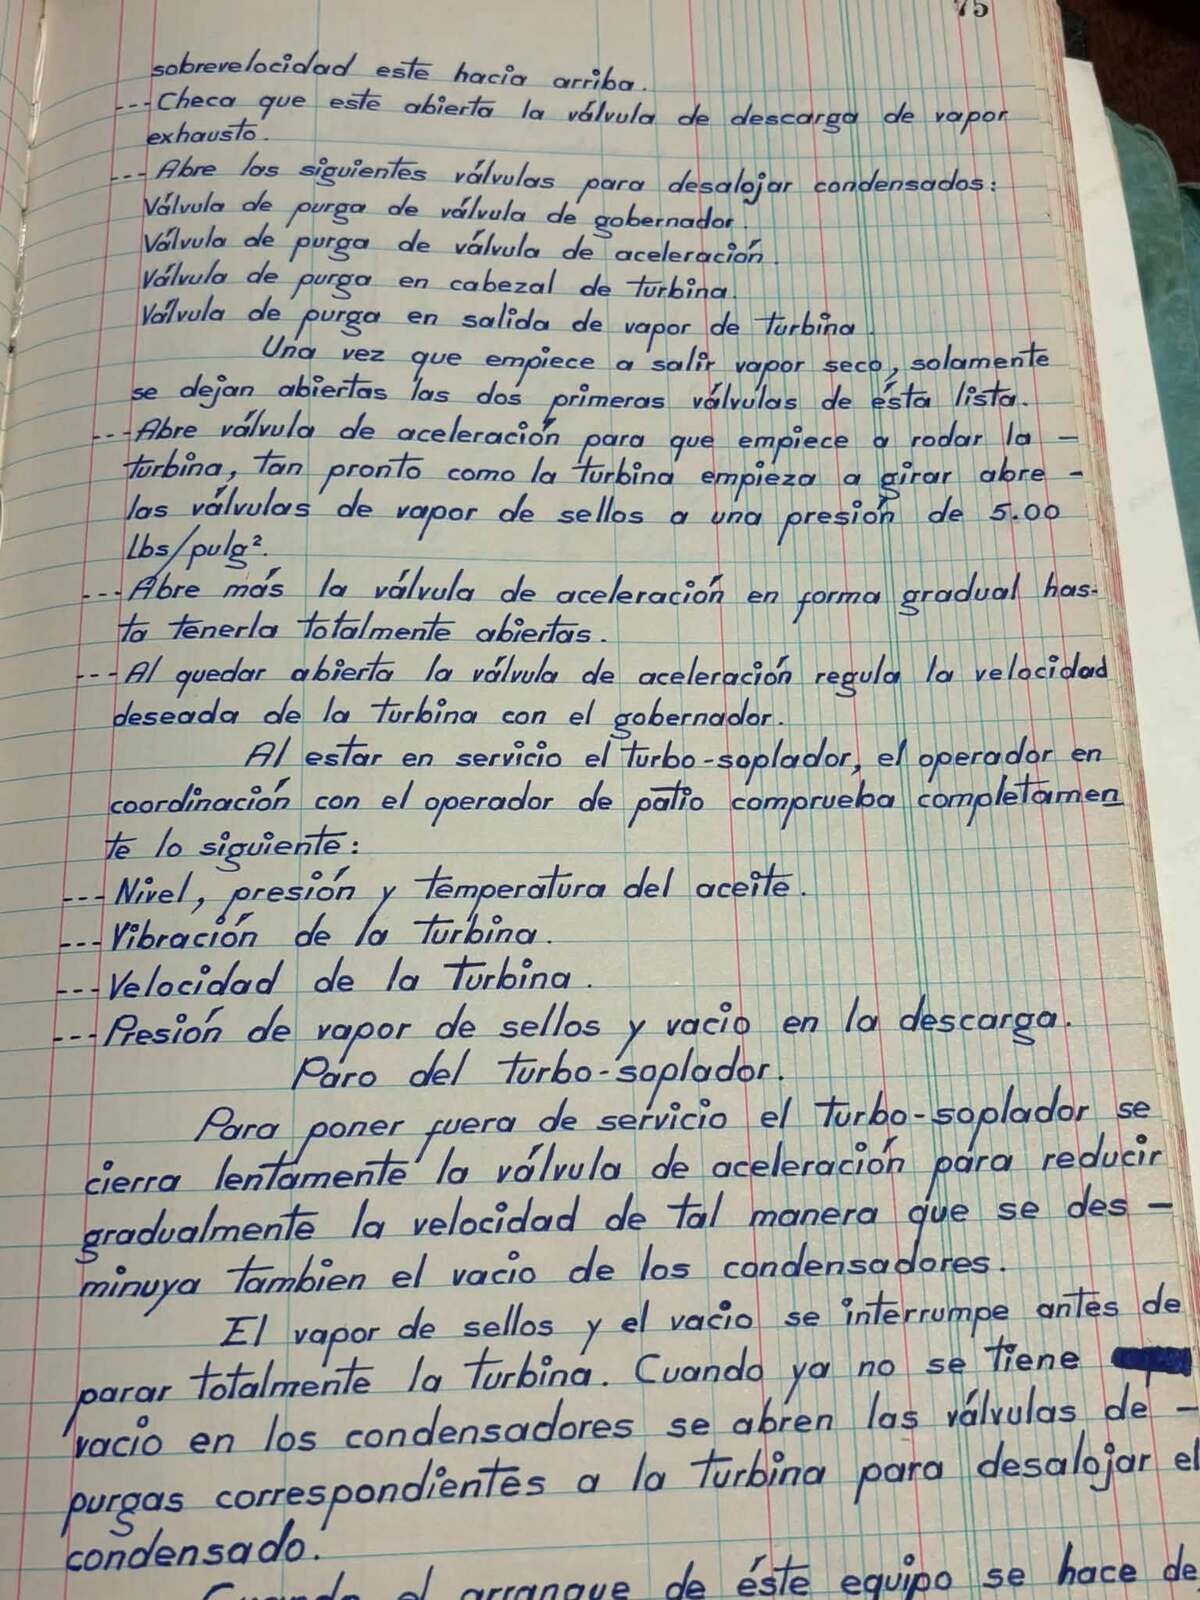 75
sobrevelocidad este hacia arriba.
---Checa que este abierta la válvula de descarga de vapor
exhausto.
---Abre las siguientes válvulas para desalojar condensados:
Válvula de purga de válvula de gobernador.
Válvula de purga de válvula de aceleración.
Válvula de purga en cabezal de turbina.
Válvula de purga en salida de vapor de turbina.
Una vez que empiece a salir vapor seco, solamente
se dejan abiertas las dos primeras válvulas de ésta lista.
---Abre válvula de aceleración para que empiece a rodar la -
turbina, tan pronto como la turbina empieza a girar abre -
las válvulas de vapor de sellos a una presión de 5.00
Lbs/pulg².
---Abre más la válvula de aceleración en forma gradual has-
ta tenerla totalmente abiertas.
---Al quedar abierta la válvula de aceleración regula la velocidad
deseada de la turbina con el gobernador.
Al estar en servicio el turbo-soplador, el operador en
coordinación con el operador de patio comprueba completamen
te lo siguiente:
---Nivel, presión y temperatura del aceite.
---Vibración de la turbina.
---Velocidad de la turbina.
---Presión de vapor de sellos y vacio en la descarga.
Paro del turbo-soplador.
Para poner fuera de servicio el turbo-soplador se
cierra lentamente la válvula de aceleración para reducir
gradualmente la velocidad de tal manera que se des -
minuya tambien el vacio de los condensadores.
El vapor de sellos y el vacio se interrumpe antes de
parar totalmente la turbina. Cuando ya no se tiene
vacio en los condensadores se abren las válvulas de -
purgas correspondientes a la turbina para desalojar el
condensado.
Cuando el arranque de éste equipo se hace de